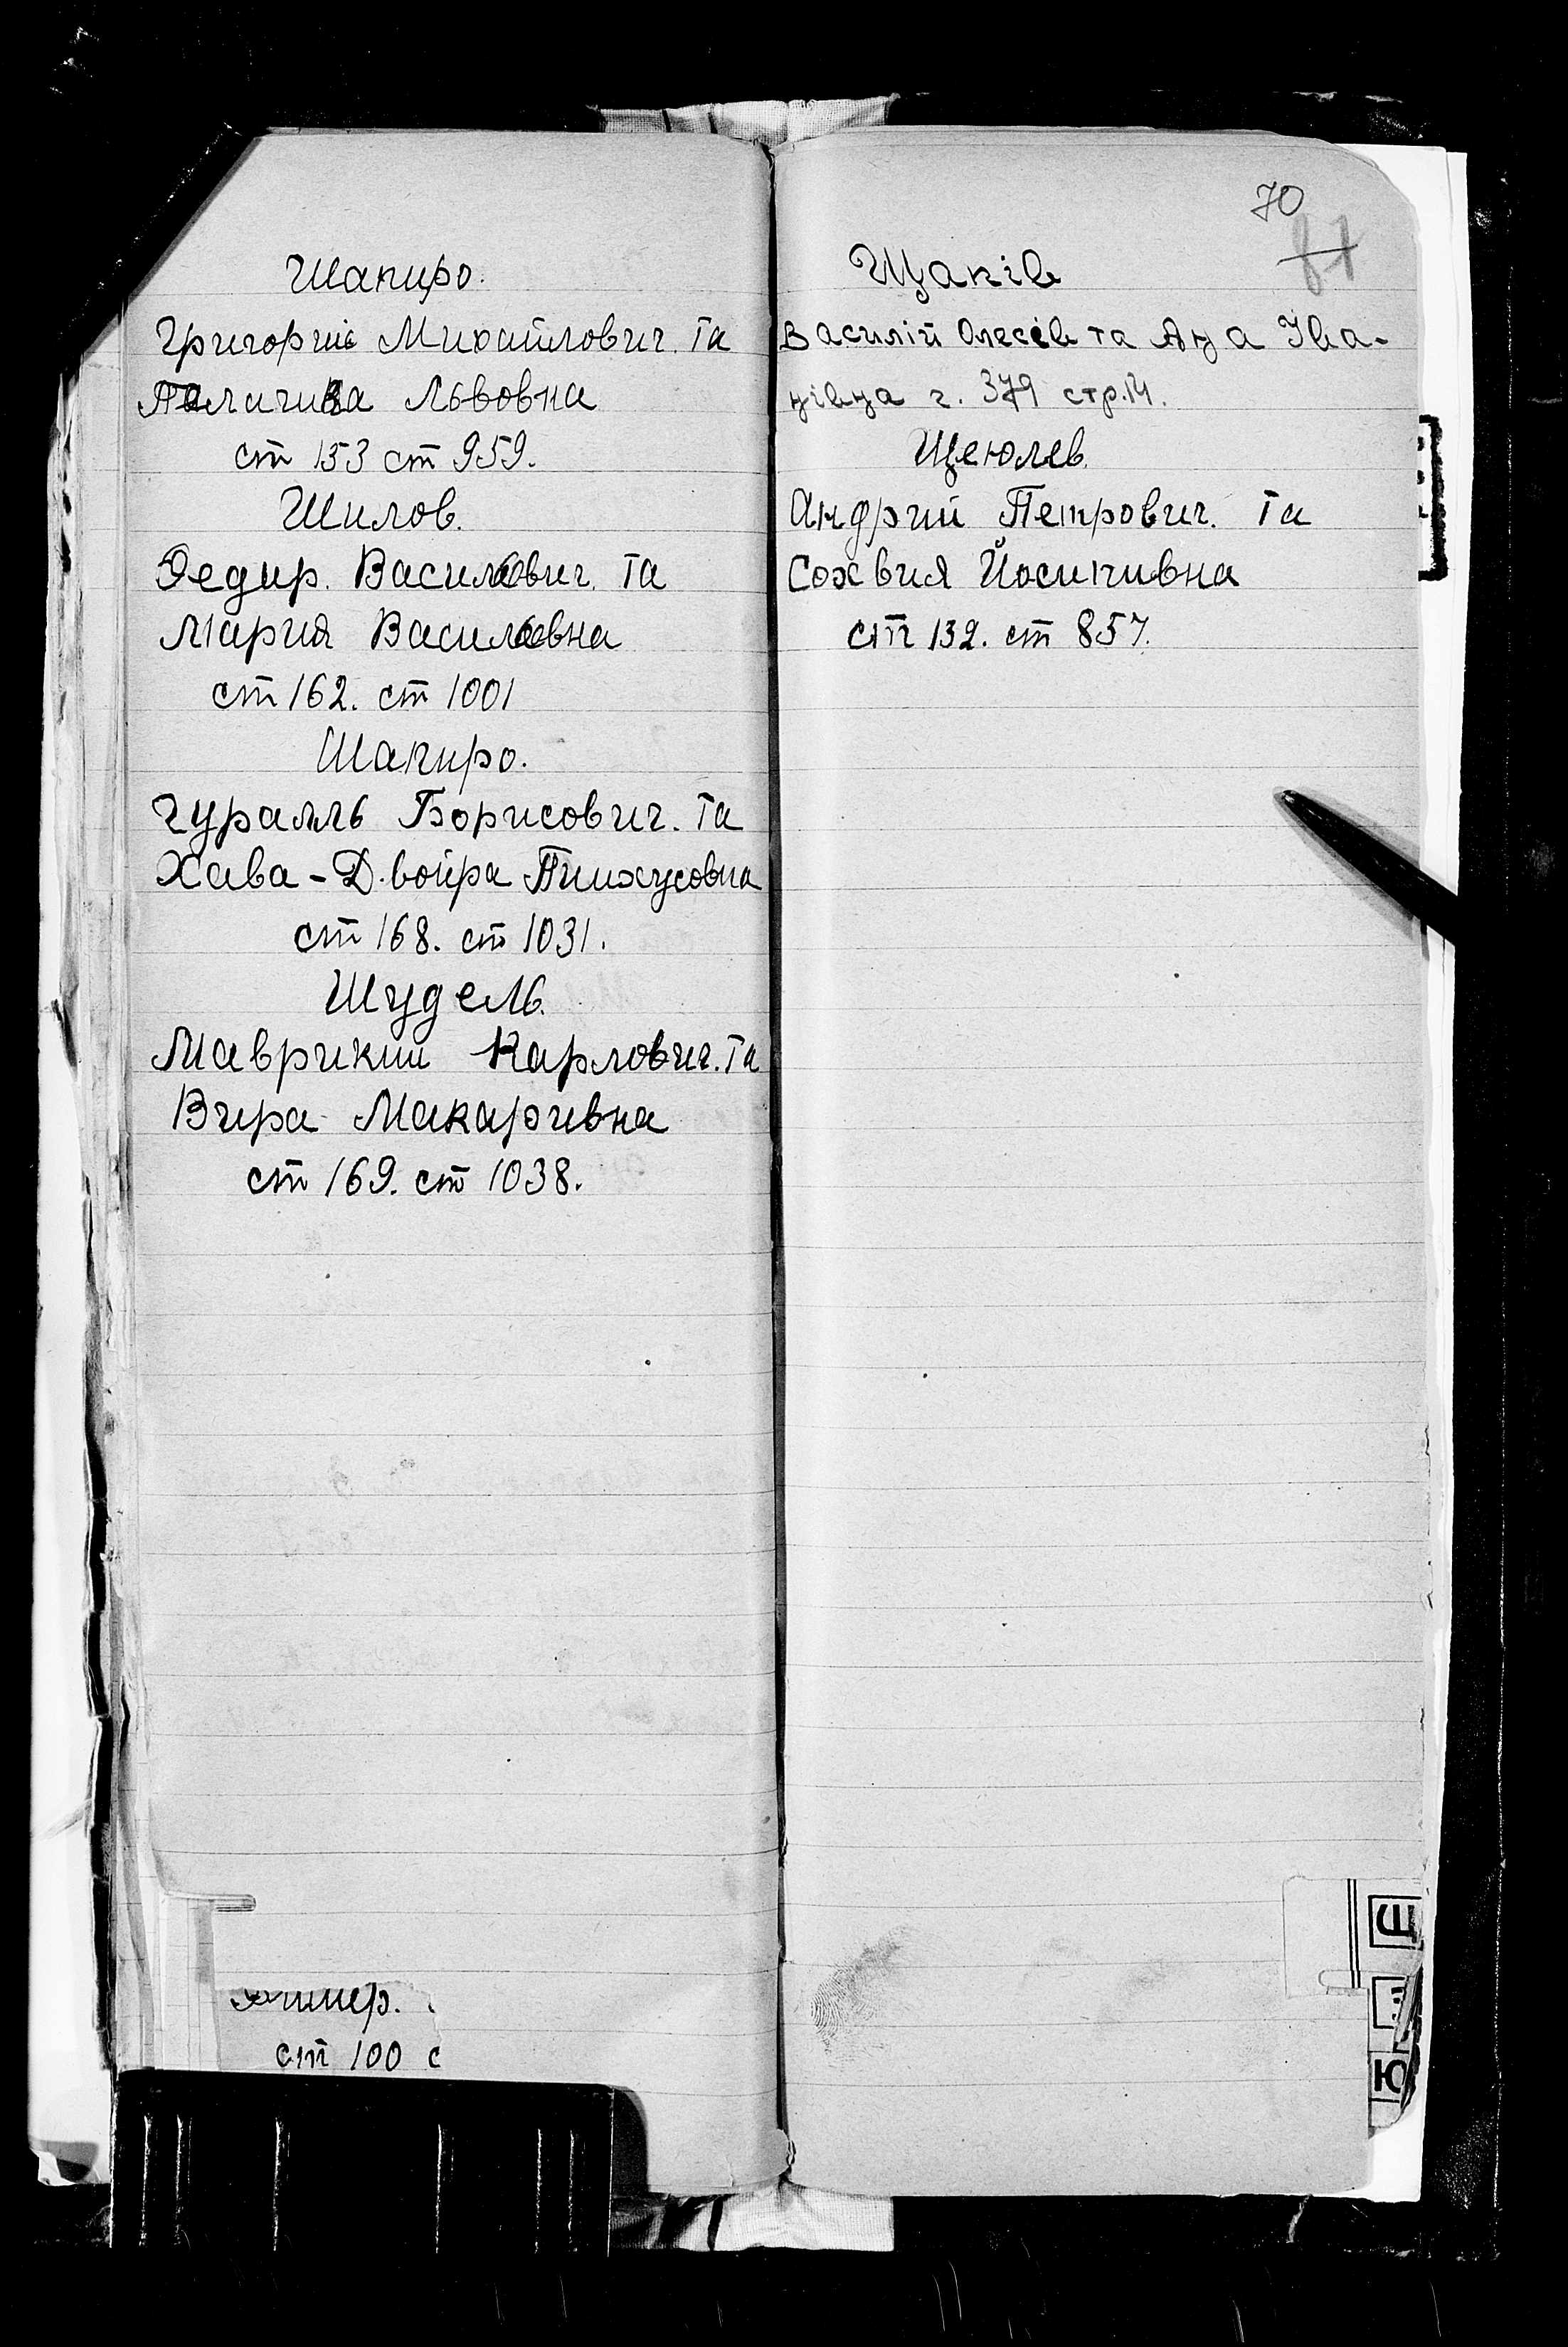 Шапиро.
Григорий Михайлович. Та
Львовна
ст 153 ст 959.
Шилов.
Федир. Василович. Та
Мария Василевна
ст 162. ст 1001
Шапиро.
Гуралль Борисович. Та
Хава - Двойра Пинхусовна
ст 168. ст 1031.
Шудель.
Маврикий Карлович. Та
Вира Макаривна
ст 169. ст 1038.
ст 100 с
70
81
Щаків
Василій Олесів та Ана Іва-
нівна г. 379 стр.14.
Щеюлев.
Андрий Петрович. Та
Сохвия Йосипивна
ст 132. ст 857.
Щ
Ю